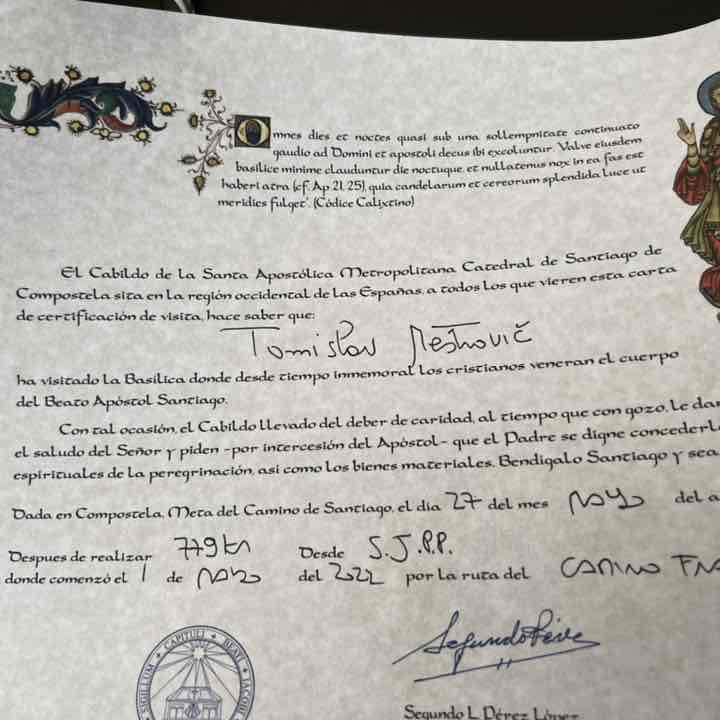 Omnes dies et noctes quasi sub una sollempnitate continuato
gaudio ad Domini et apostoli decus ibi excoluntur. Valve eiusdem
basilice minime clauduntur die noctuque, et nullatenus nox in ea fas est
haberi atra (cf. Ap 21, 25), quia candelarum et cereorum splendida luce ut
meridies fulget'. (Códice Calixtino)
El Cabildo de la Santa Apostólica Metropolitana Catedral de Santiago de
Compostela sita en la región occidental de las Españas, a todos los que vieren esta carta
de certificación de visita, hace saber que:
Tomislav Meštrovič
ha visitado la Basílica donde desde tiempo inmemorial los cristianos veneran el cuerpo
del Beato Apóstol Santiago.
Con tal ocasión, el Cabildo llevado del deber de caridad, al tiempo que con gozo, le da
el saludo del Señor y piden -por intercesión del Apóstol- que el Padre se digne concederl
espirituales de la peregrinación, así como los bienes materiales. Bendígalo Santiago y sea
Dada en Compostela, Meta del Camino de Santiago, el día 27 del mes mayo del a
Despues de realizar 779 km Desde S.J.P.P.
donde comenzó el 1 de mayo del 2022 por la ruta del CAMINO FRA
SIGILLUM CAPITULI BEATI IACOBI
Segundo Pérez
Segundo L. Pérez López